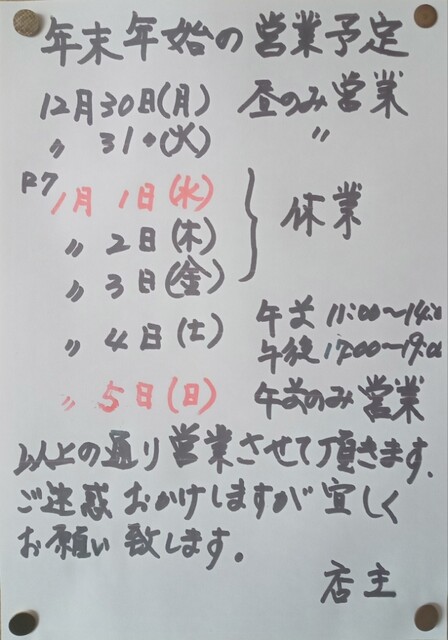 年末年始の営業予定
12月30日(月) 昼のみ営業
〃 31〃(火) 〃
R7
1月1日(水)
〃 2日(木) 休業
〃 3日(金)
〃 4日(土) 午前 11:00〜14:00
午後 17:00〜19:00
〃 5日(日) 午前のみ営業
以上の通り営業させて頂きます.
ご迷惑おかけしますが宜しく
お願い致します。
店主